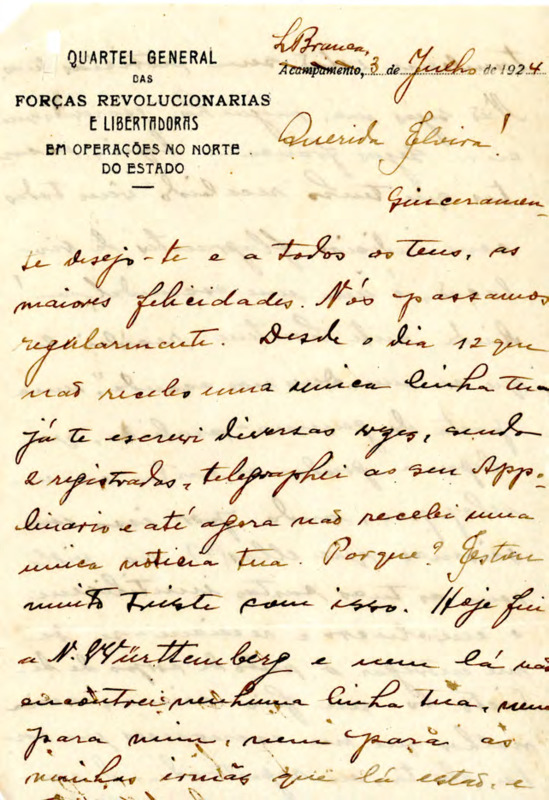 QUARTEL GENERAL
DAS
FORÇAS REVOLUCIONARIAS
E LIBERTADORAS
EM OPERAÇÕES NO NORTE
DO ESTADO
L. Branca,
Acampamento, 3 de Julho de 1924
Querida Elvira!
Sinceramen-
te desejo-te e a todos os teus, as
maiores felicidades. Nós passamos
regularmente. Desde o dia 12 que
não recebo uma unica linha tua
já te escrevi diversas vezes, sendo
2 registradas, telegraphei ao seu Appo-
linario e até agora não recebi uma
unica noticia tua. Porque? Estou
muito triste com isso. Hoje fui
a N. Württemberg e nem lá não
encontrei nenhuma linha tua, nem
para mim, nem para as
minhas irmãs que lá estão, e